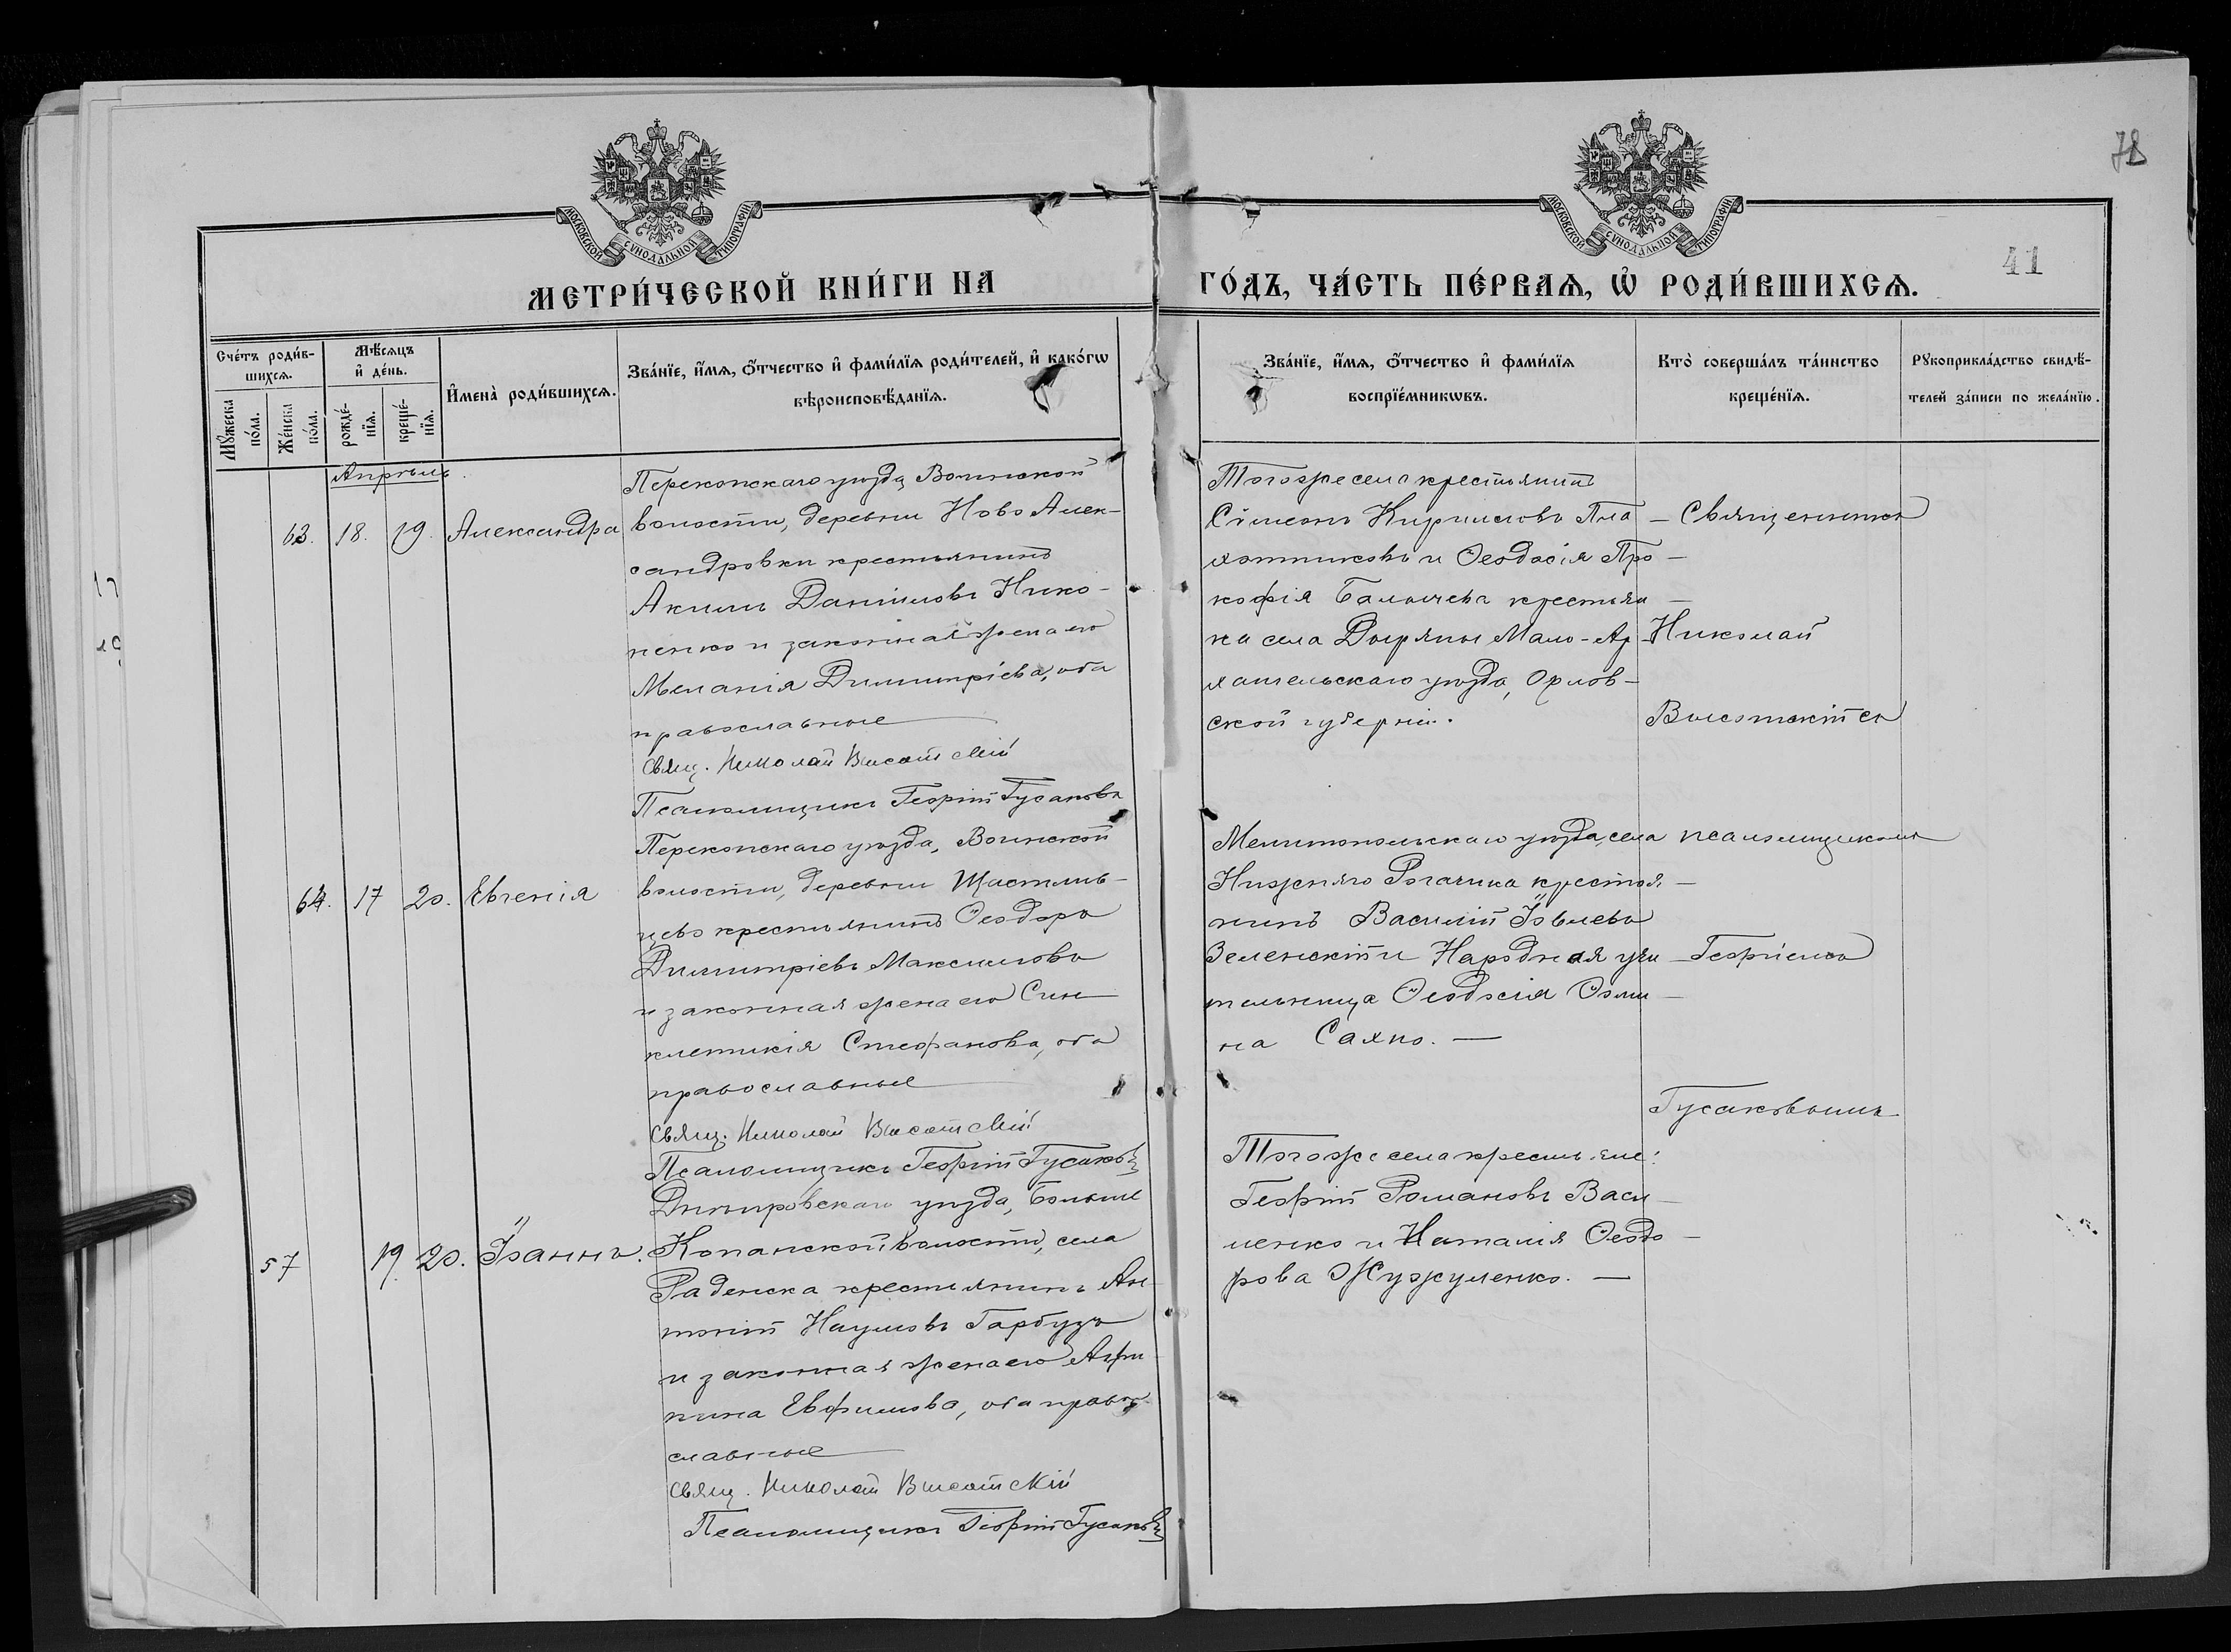 78
41
МОСКОВСКОЙ СУНОДАЛЬНОЙ ТИПОГРАФІИ
МОСКОВСКОЙ СУНОДАЛЬНОЙ ТИПОГРАФІИ
МЕТРИ́ЧЕСКОЙ КНИ́ГИ НА
ГО́ДЪ, ЧА́СТЬ ПЕ́РВАѦ, Ѡ҆ РОДИ́ВШИХСѦ.
Сче́тъ роди́в-
шихсѧ.
Мꙋ́жеска по́ла.
Же́нска по́ла.
Мѣ́сѧцъ
и҆ де́нь.
рожде́-
нїѧ.
креще́-
нїѧ.
И҆мена̀ роди́вшихсѧ.
Зва́нїе, и҆́мѧ, ѻ҆́тчество и҆ фами́лїѧ роди́телей, и҆ како́гѡ
вѣроисповѣ́данїѧ.
Зва́нїе, и҆́мѧ, ѻ҆́тчество и҆ фами́лїѧ
воспрїе́мникѡвъ.
Кто̀ соверша́лъ та́инство
креще́нїѧ.
Рꙋкоприкла́дство свидѣ́-
телей за́писи по жела́нїю.
Апрѣль
63. 18. 19. Александра
Перекопскаго уѣзда Воинской
волости, деревни Ново Алек-
сандровки крестьянинъ
Акимъ Даніиловъ Нико-
ненко и законная жена его
Меланія Димитріева, оба
православные
Свящ. Николай Высотскій
Псаломщикъ Георгій Гусаковъ
Тогоже села крестьянинъ
Сѵмеонъ Кириловъ Пла-
хотниковъ и Ѳеодосія Про-
кофія Балычева крестьян
ка села Дмряны Мало-Ар
хангельскаго уѣзда, Орлов-
ской губерніи.
Священникъ
Николай
Высотскій съ
64. 17 20. Евгенія
Перекопскаго уѣзда, Воинской
волости, деревни Щастлив-
цево крестьянинъ Ѳеодоръ
Димитріевъ Максимовъ
и законная жена его Син
клитикія Стефанова, оба
православные
Свящ. Николай Высотскій
Псаломщикъ Георгій Гусаковъ
Мелитопольскаго уѣзда, села
Нижняго Рогачика крестья-
нинъ Василій Іовлевъ
Зеленскій и Народная учи
тельница Ѳеодосія Ѳоми
на Сахно.
псаломщикомъ
Георгіемъ
Гусаковымъ
57 19. 20. Іоаннъ.
Днѣпровскаго уѣзда, Больше
Копанской волости, села
Раденска крестьянинъ Ан
тоній Наумовъ Гарбузъ
и законная жена его Агри
пина Евфимова, оба право
славные
Свящ. Николай Высотскій
Псаломщикъ Георгій Гусаковъ
Тогоже села крестьяне:
Георгій Романовъ Васи
ленко и Наталія Ѳеодо
рова Жужуленко.